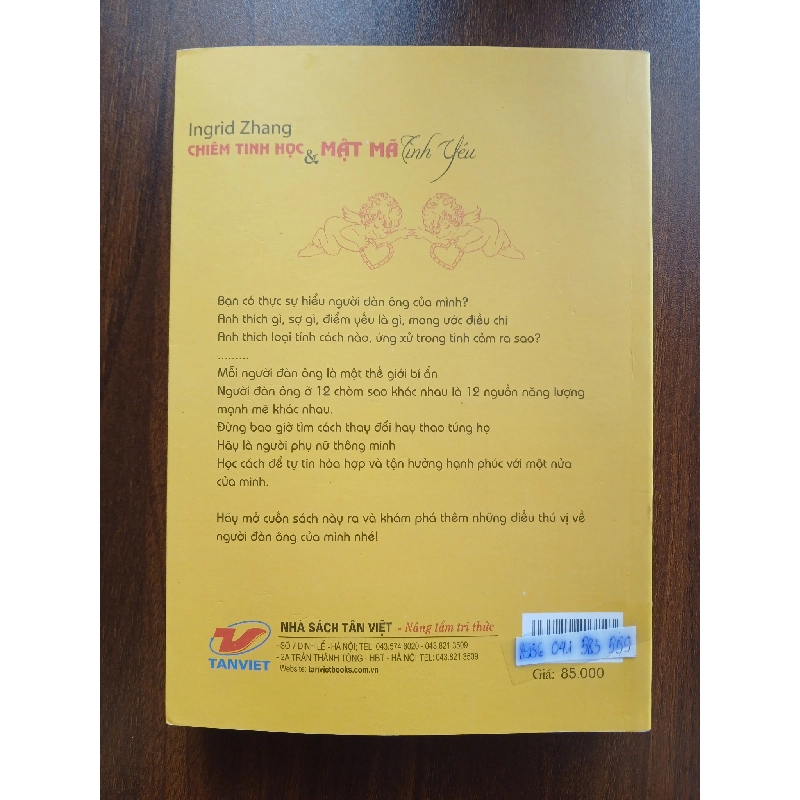 Ingrid Zhang
CHIÊM TINH HỌC & MẬT MÃ Tình Yêu
Bạn có thực sự hiểu người đàn ông của mình?
Anh thích gì, sợ gì, điểm yếu là gì, mong ước điều chi
Anh thích loại tính cách nào, ứng xử trong tình cảm ra sao?
.........
Mỗi người đàn ông là một thế giới bí ẩn
Người đàn ông ở 12 chòm sao khác nhau là 12 nguồn năng lượng
mạnh mẽ khác nhau.
Đừng bao giờ tìm cách thay đổi hay thao túng họ
Hãy là người phụ nữ thông minh
Học cách để tự tin hòa hợp và tận hưởng hạnh phúc với một nửa
của mình.
Hãy mở cuốn sách này ra và khám phá thêm những điều thú vị về
người đàn ông của mình nhé!
TANVIET
NHÀ SÁCH TÂN VIỆT - Nâng tầm tri thức
- SỐ 7 ĐINH LỄ - HÀ NỘI; TEL: 043.574 8020 - 043.821 3509
- 2A TRẦN THÁNH TÔNG - HBT - HÀ NỘI TEL: 043.821 3509
Website: tanvietbooks.com.vn
041 583 559
Giá: 85.000